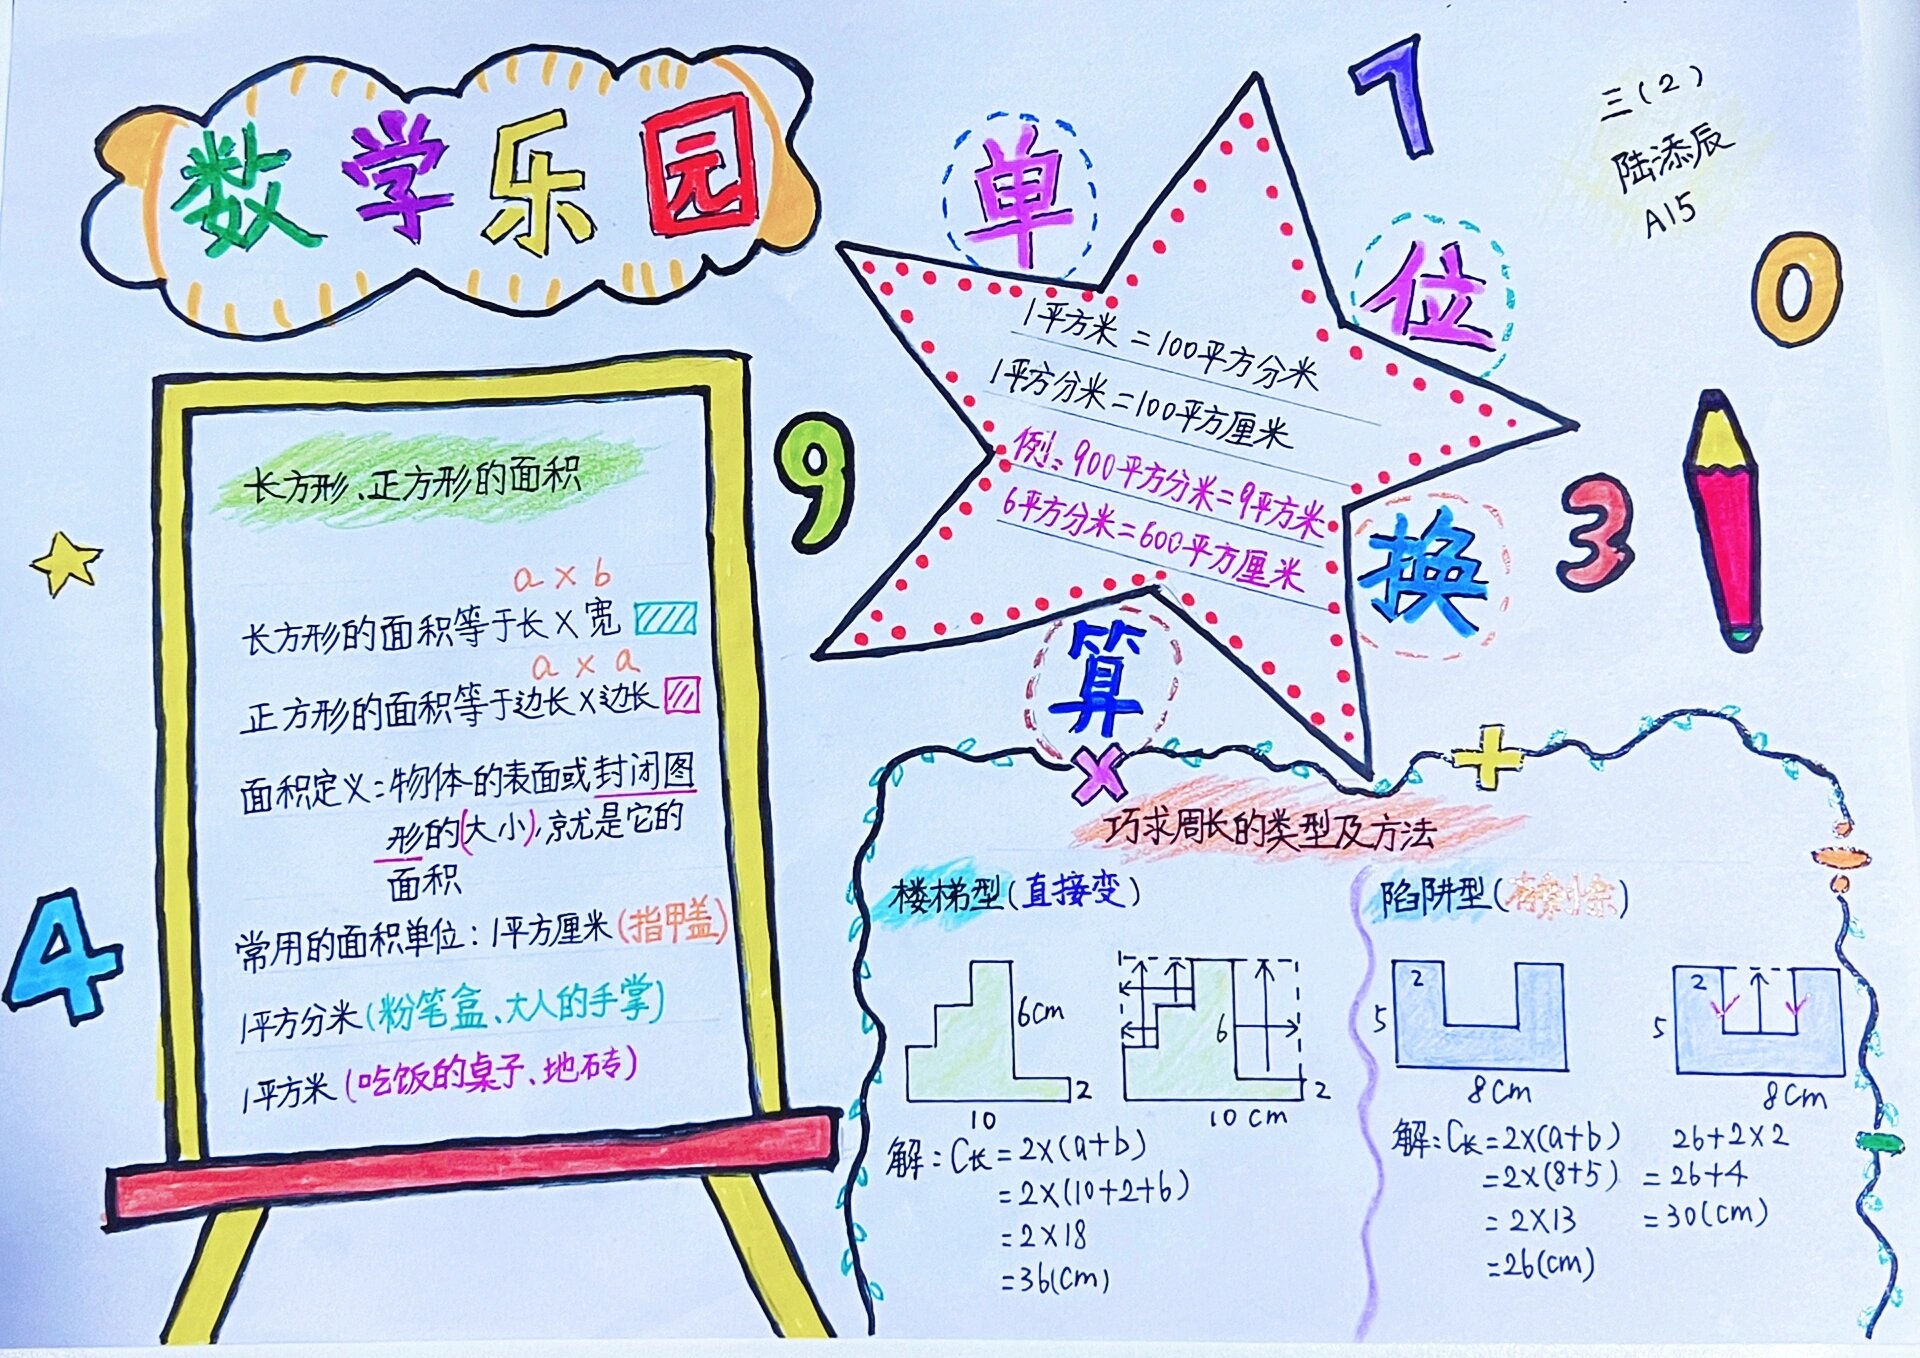 数学乐园
三(2)
陆添辰
A15
7
0
9
3
4
单位换算
1平方米=100平方分米
1平方分米=100平方厘米
例:900平方分米=9平方米
6平方分米=600平方厘米
长方形、正方形的面积
a×b
长方形的面积等于长×宽
a×a
正方形的面积等于边长×边长
面积定义:物体的表面或封闭图
形的(大小),就是它的
面积
常用的面积单位:1平方厘米(指甲盖)
1平方分米(粉笔盒、大人的手掌)
1平方米(吃饭的桌子、地砖)
×
+
巧求周长的类型及方法
楼梯型(直接变)
6cm
2
10
6
2
10cm
解:C长=2×(a+b)
=2×(10+2+6)
=2×18
=36(cm)
陷阱型
2
5
8cm
2
5
8cm
解:C长=2×(a+b)
=2×(8+5)
=2×13
=26(cm)
26+2×2
=26+4
=30(cm)